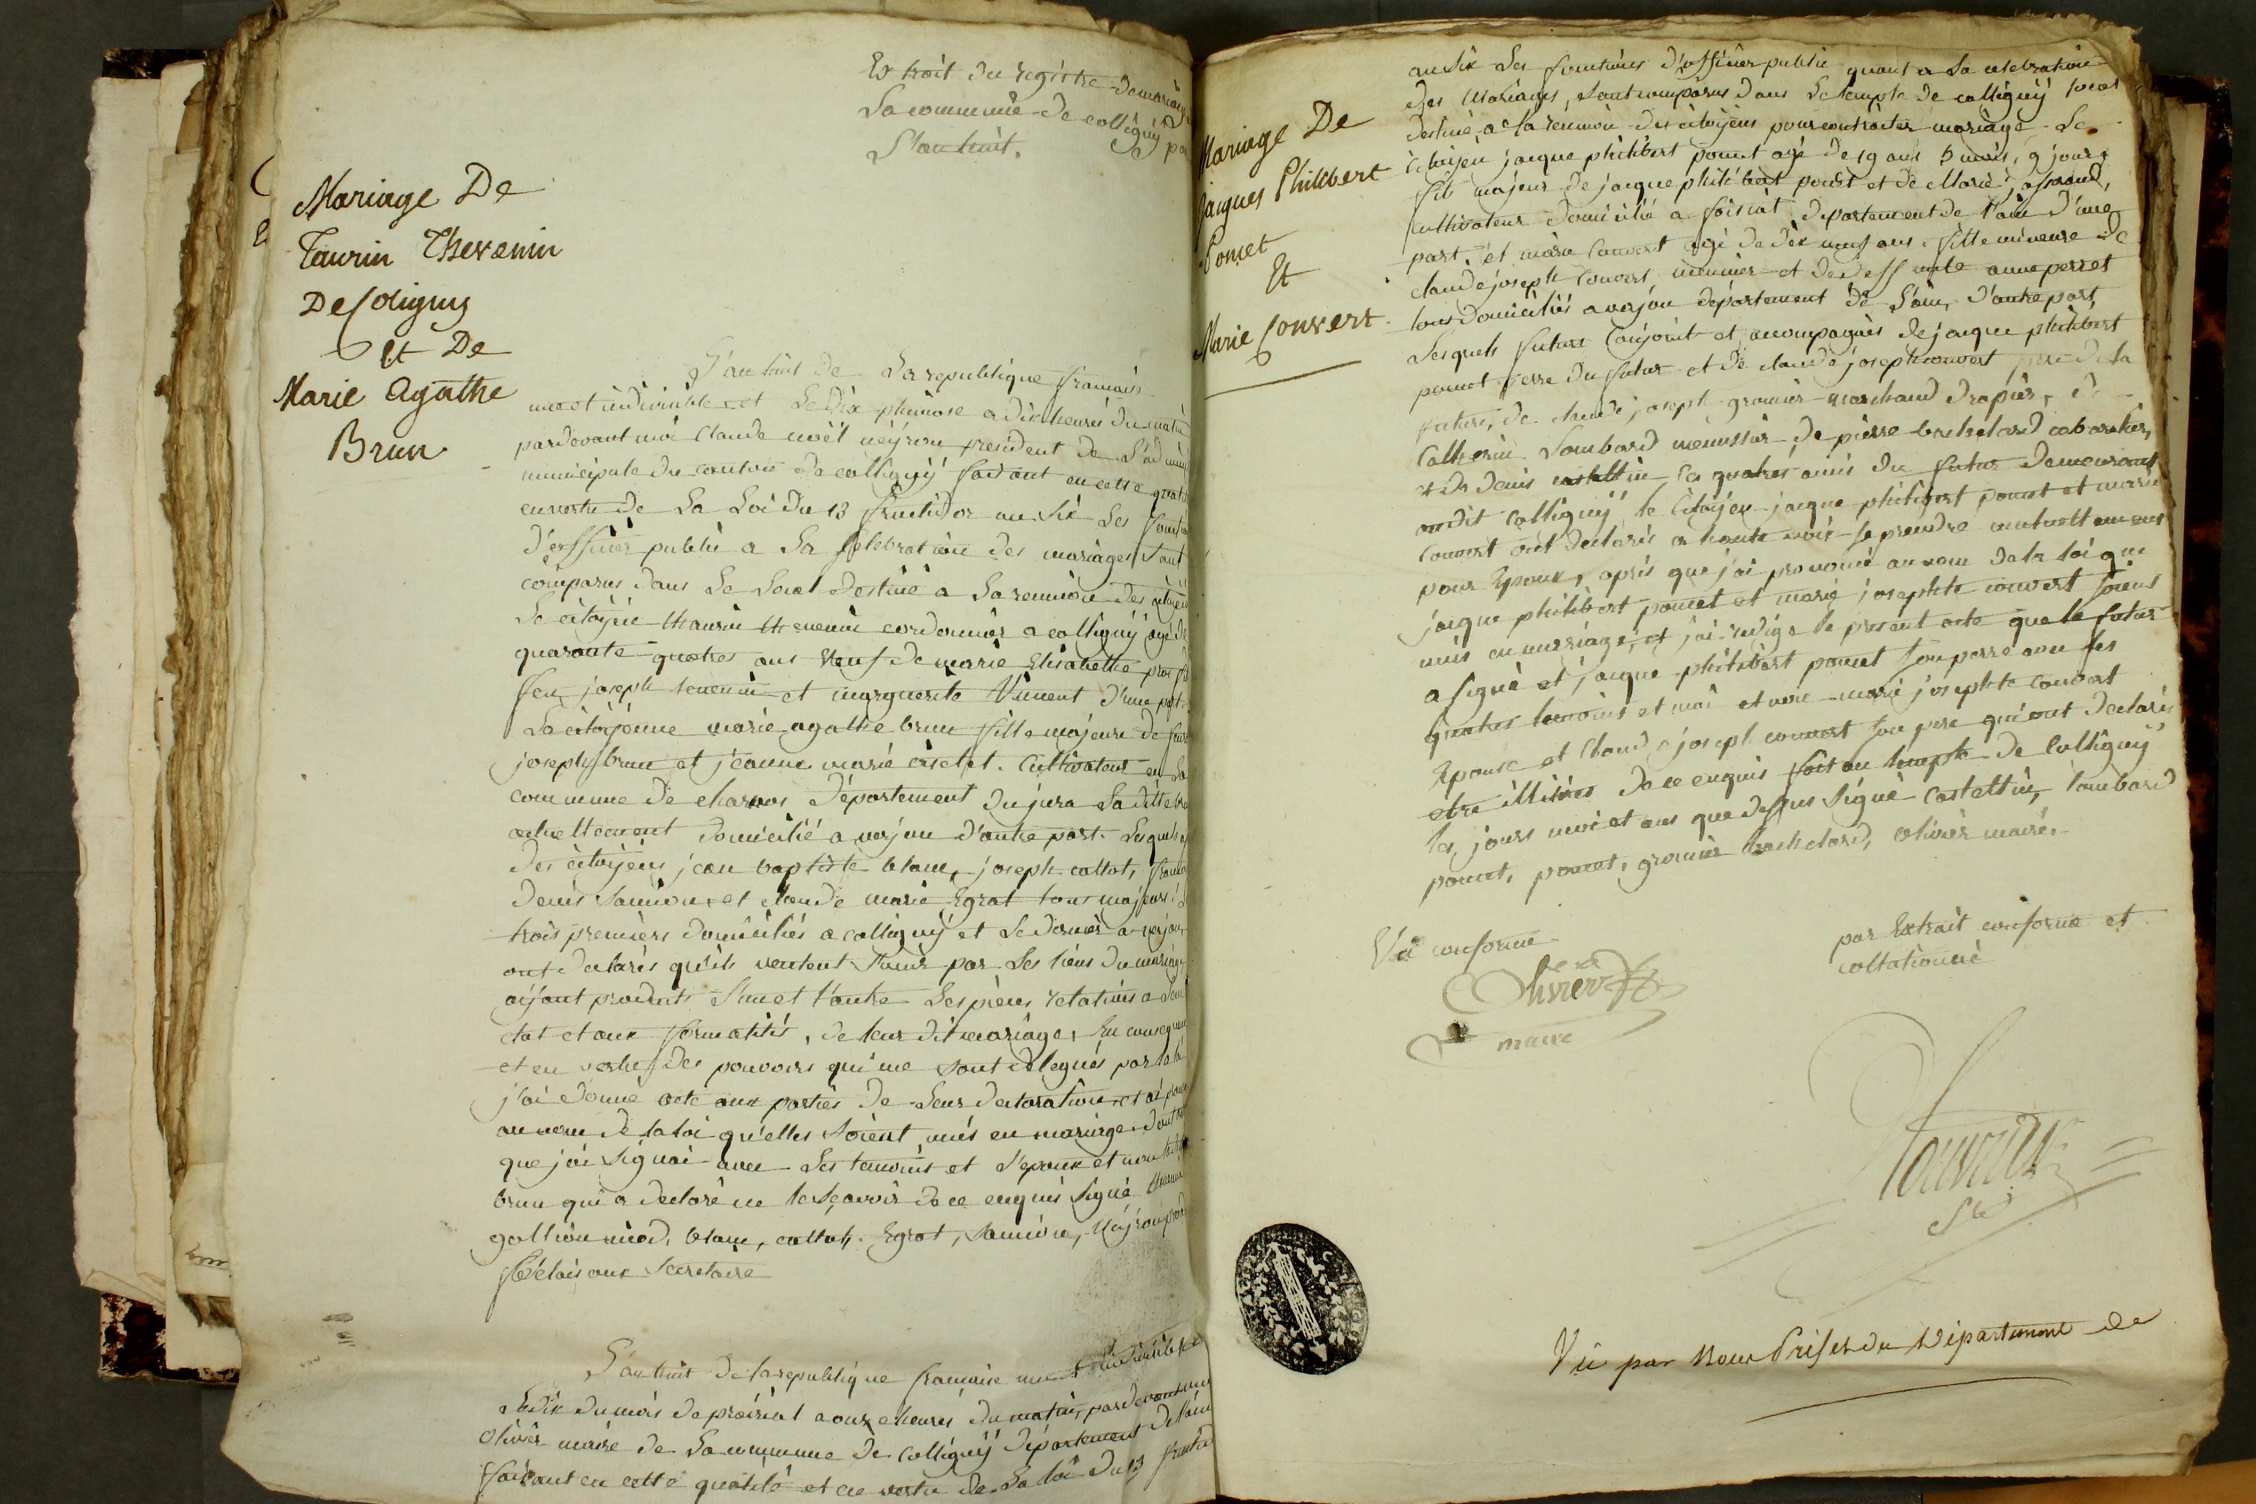 Extrait du registre de mariage
La commune de colligny
L'an huit.
Mariage De
Taurin Thevenin
De Coligny
et De
Marie Agathe
Brun
L'an huit de La republique francais
une et indivisible et Le Dix pluviose a dix heures du matin
pardevant moi Claude noël neyron president de L'admin
municipale du canton de colligny faisant en cette qualité
en vertu de La Loi du 13 fructidor an Six Les fonction
d'officier public a La selebration des mariages sont
comparus dans Le Local destiné a La reunion des citoyen
Le citoyen thaurin thevenin cordonnier a colligny agé de
quarante quatres ans Veuf de marie Elisabethe
feu joseph tevenin et marguerite Vincent d'une part
La citoyenne marie agathe brun fille majeure de
joseph brun et jeanne marie Cultivateur en La
commune de département du jura La ditte
actuellement domicilié a verjon d'autre part. Lesquels
des citoyens jean baptiste blanc, joseph collot,
denis et claude marie Egrat tous majeurs
trois premiers domiciliés a colligny et Le dernier a verjon
ont declarés qu'ils veulent s'unir par Les liens du mariage
aijant produits L'un et l'autre Les pieces relatives a Leur
etat et aux formalités, de leur dit mariage, En consequence
et en vertu des pouvoirs qui me sont delegués par la loi
j'ai donné acte aux parties de Leur declaration et ai
au nom de la loi qu'elles soient unis en mariage dont
que j'ai signai avec Les temoins et L'epoux et non
brun qui a declaré ne le sçavoir de ce enquis signé
blanc, collot, Egrat, neyron
secretaire
L'an huit de la republique francaise une et indivisible
Le dix du mois de prairial a onze heures du matin, pardevant
olivier maire de La commune de Colligny département de l'ain
faisant en cette qualité et en vertu de La loi du 13 fructid
Mariage De
Jacques Philibert
Pomet
Et
Marie Convert
an Six Les fonctions d'officier public quant a La celebration
des Mariages, sont comparus dans Le temple de colligny local
destiné a la reunion des citoyens pour contracter mariage Le
citoyen jacque philibert pomet agé de 19 ans 5 mois, 9 jours
fils majeur de jacque philibert pomet et de Marie
cultivateur domicilié a foissiat département de l'ain d'une
part, et marie Convert agé de dix neuf ans fille mineure de
claude joseph Convert meunier et de deffunte anne perret
tous domiciliés a verjon département de L'ain, d'autre part,
Lesquels futurs Conjoint et accompagnés de jacque philibert
pomet perre du futur et de claude joseph convert perre de la
future, de claude joseph gromier marchand drapier, de
Catherin Lombard menuissier de pierre cabaretier,
et de denis castellin Les quatres amis du futur demeurant
audit Colligny, le Citoyen jacque philibert pomet et marie
convert ont declarés a haute voix se prendre mutuellement
pour Epoux, aprés que j'ai prononcé au nom de la loi que
jacque philibert pomet et marie josephte convert soient
unis en mariage, et j'ai redigé le present acte que le futur
a signé et jacque philibert pomet son perre avec les
quatres temoins et moi et non marie josephte convert
Epouse et Claude joseph convert son pere qui ont declarés
etre illitires de ce enquis fait au temple de Colligny
les jours mois et ans que dessus signé castellin, lombard
pomet, pomet, gromier olivier maire.
Vu conforme
Olivier
maire
par Extrait conforme et
collationné
Vu par Nous Préfet du Département de